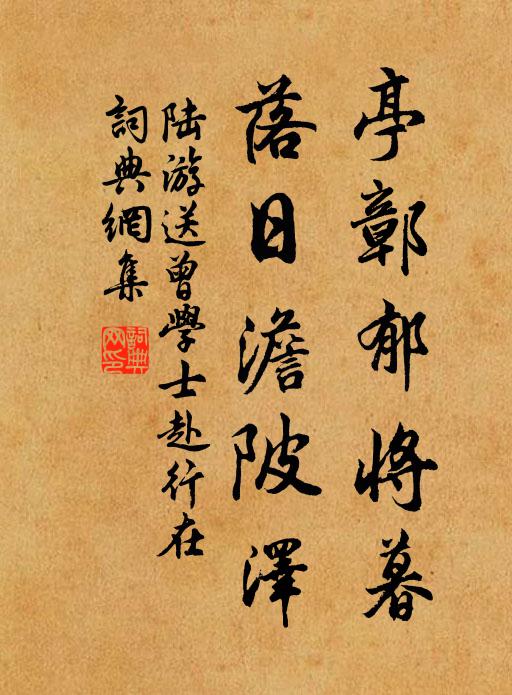 亭鄣郁將暮
落日澹陂澤
陆游送曾學士赴行在
詞典網集
詞典网印